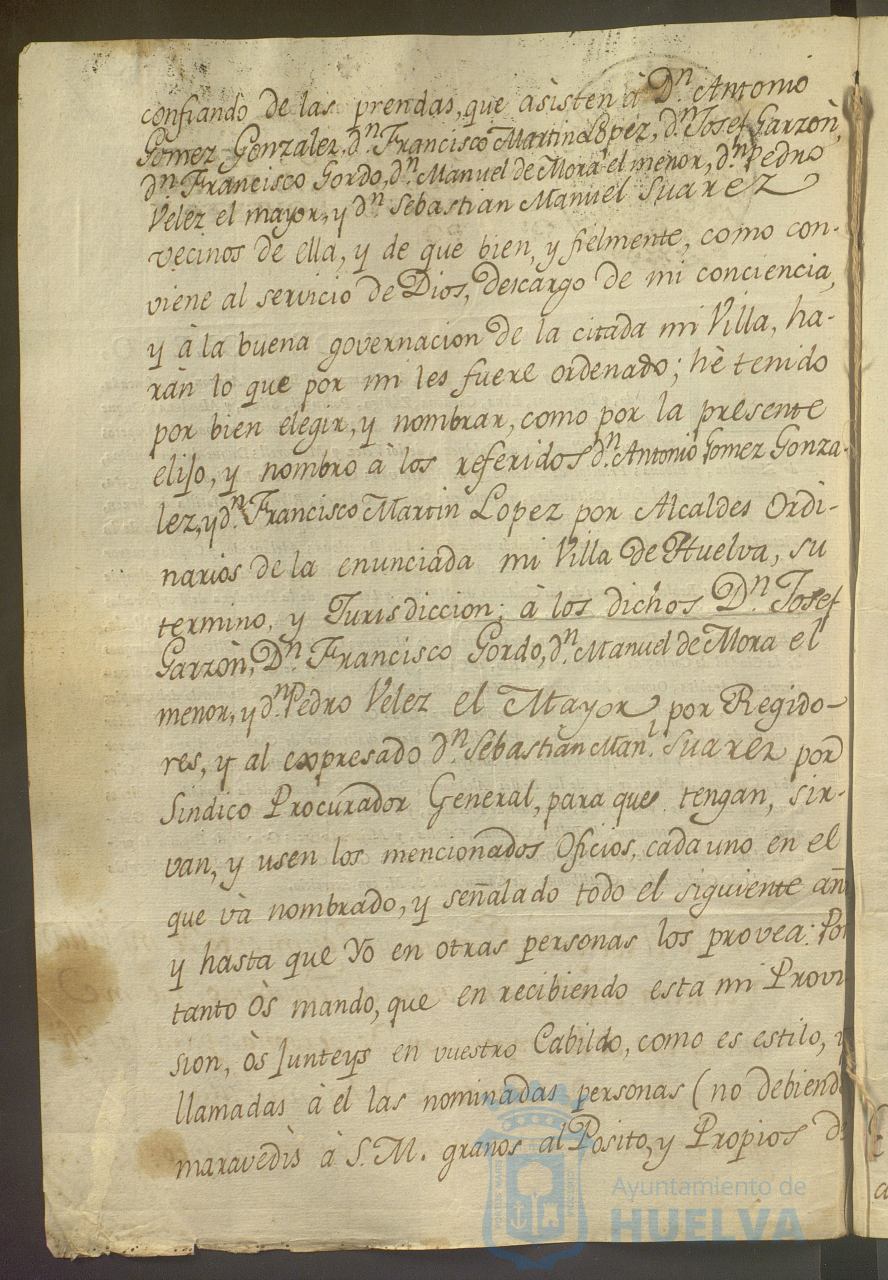 confiando de las prendas, que àsisten à Dn. Antonio
Gomez Gonzalez, dn. Francisco Martin Lopez, dn. Josef Garzòn,
dn. Francisco Gordo, dn. Manuel de Mora el menor, dn. Pedro
Velez el mayor, y dn. Sebastian Manuel Suarez
vecinos de ella, y de que bien, y fielmente, como con-
viene al servicio de Dios, descargo de mi conciencia,
y à la buena governacion de la citada mi Villa, ha-
ràn lo que por mi les fuere ordenado; hè tenido
por bien elegir, y nombrar, como por la presente
elijo, y nombro à los referidos dn. Antonio Gomez Gonza-
lez, y dn. Francisco Martin Lopez por Alcaldes Ordi-
narios de la enunciada mi Villa de Huelva, su
termino, y Jurisdiccion; à los dichos Dn. Josef
Garzòn, Dn. Francisco Gordo, dn. Manuel de Mora el
menor, y dn. Pedro Velez el Mayor, por Regido-
res, y al expresado dn. Sebastian Manl. Suarez por
Sindico Procurador General, para que tengan, sir-
van, y usen los mencionados Oficios, cada uno en el
que và nombrado, y señalado todo el siguiente añ
y hasta que Yo en otras personas los provea: Por
tanto Òs mando, que en recibiendo esta mi Provi
sion, òs Junteys en vuestro Cabildo, como es estilo, y
llamadas à el las nominadas personas (no debiend
maravedìs à S. M. granos al Posito, y Propios de
Ayuntamiento de
HUELVA